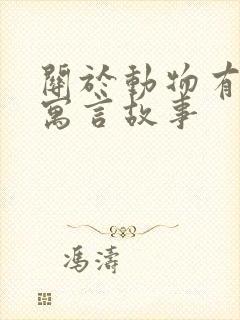 關於動物有
寓言故事
馮濤